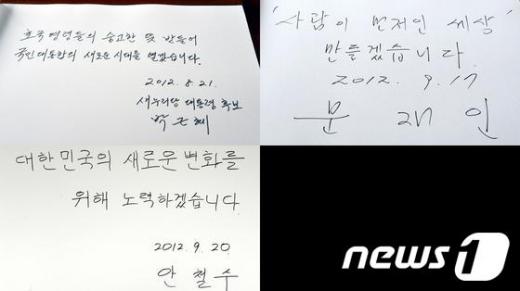 호국영령들의 숭고한 뜻 받들어
국민대통합의 새로운 시대를 열겠습니다.
2012. 8. 21.
새누리당 대통령 후보
박근혜
'사람이 먼저인 세상'
만들겠습니다
2012. 9. 17
문 재 인
대한민국의 새로운 변화를
위해 노력하겠습니다
2012. 9. 20
안 철 수
news1